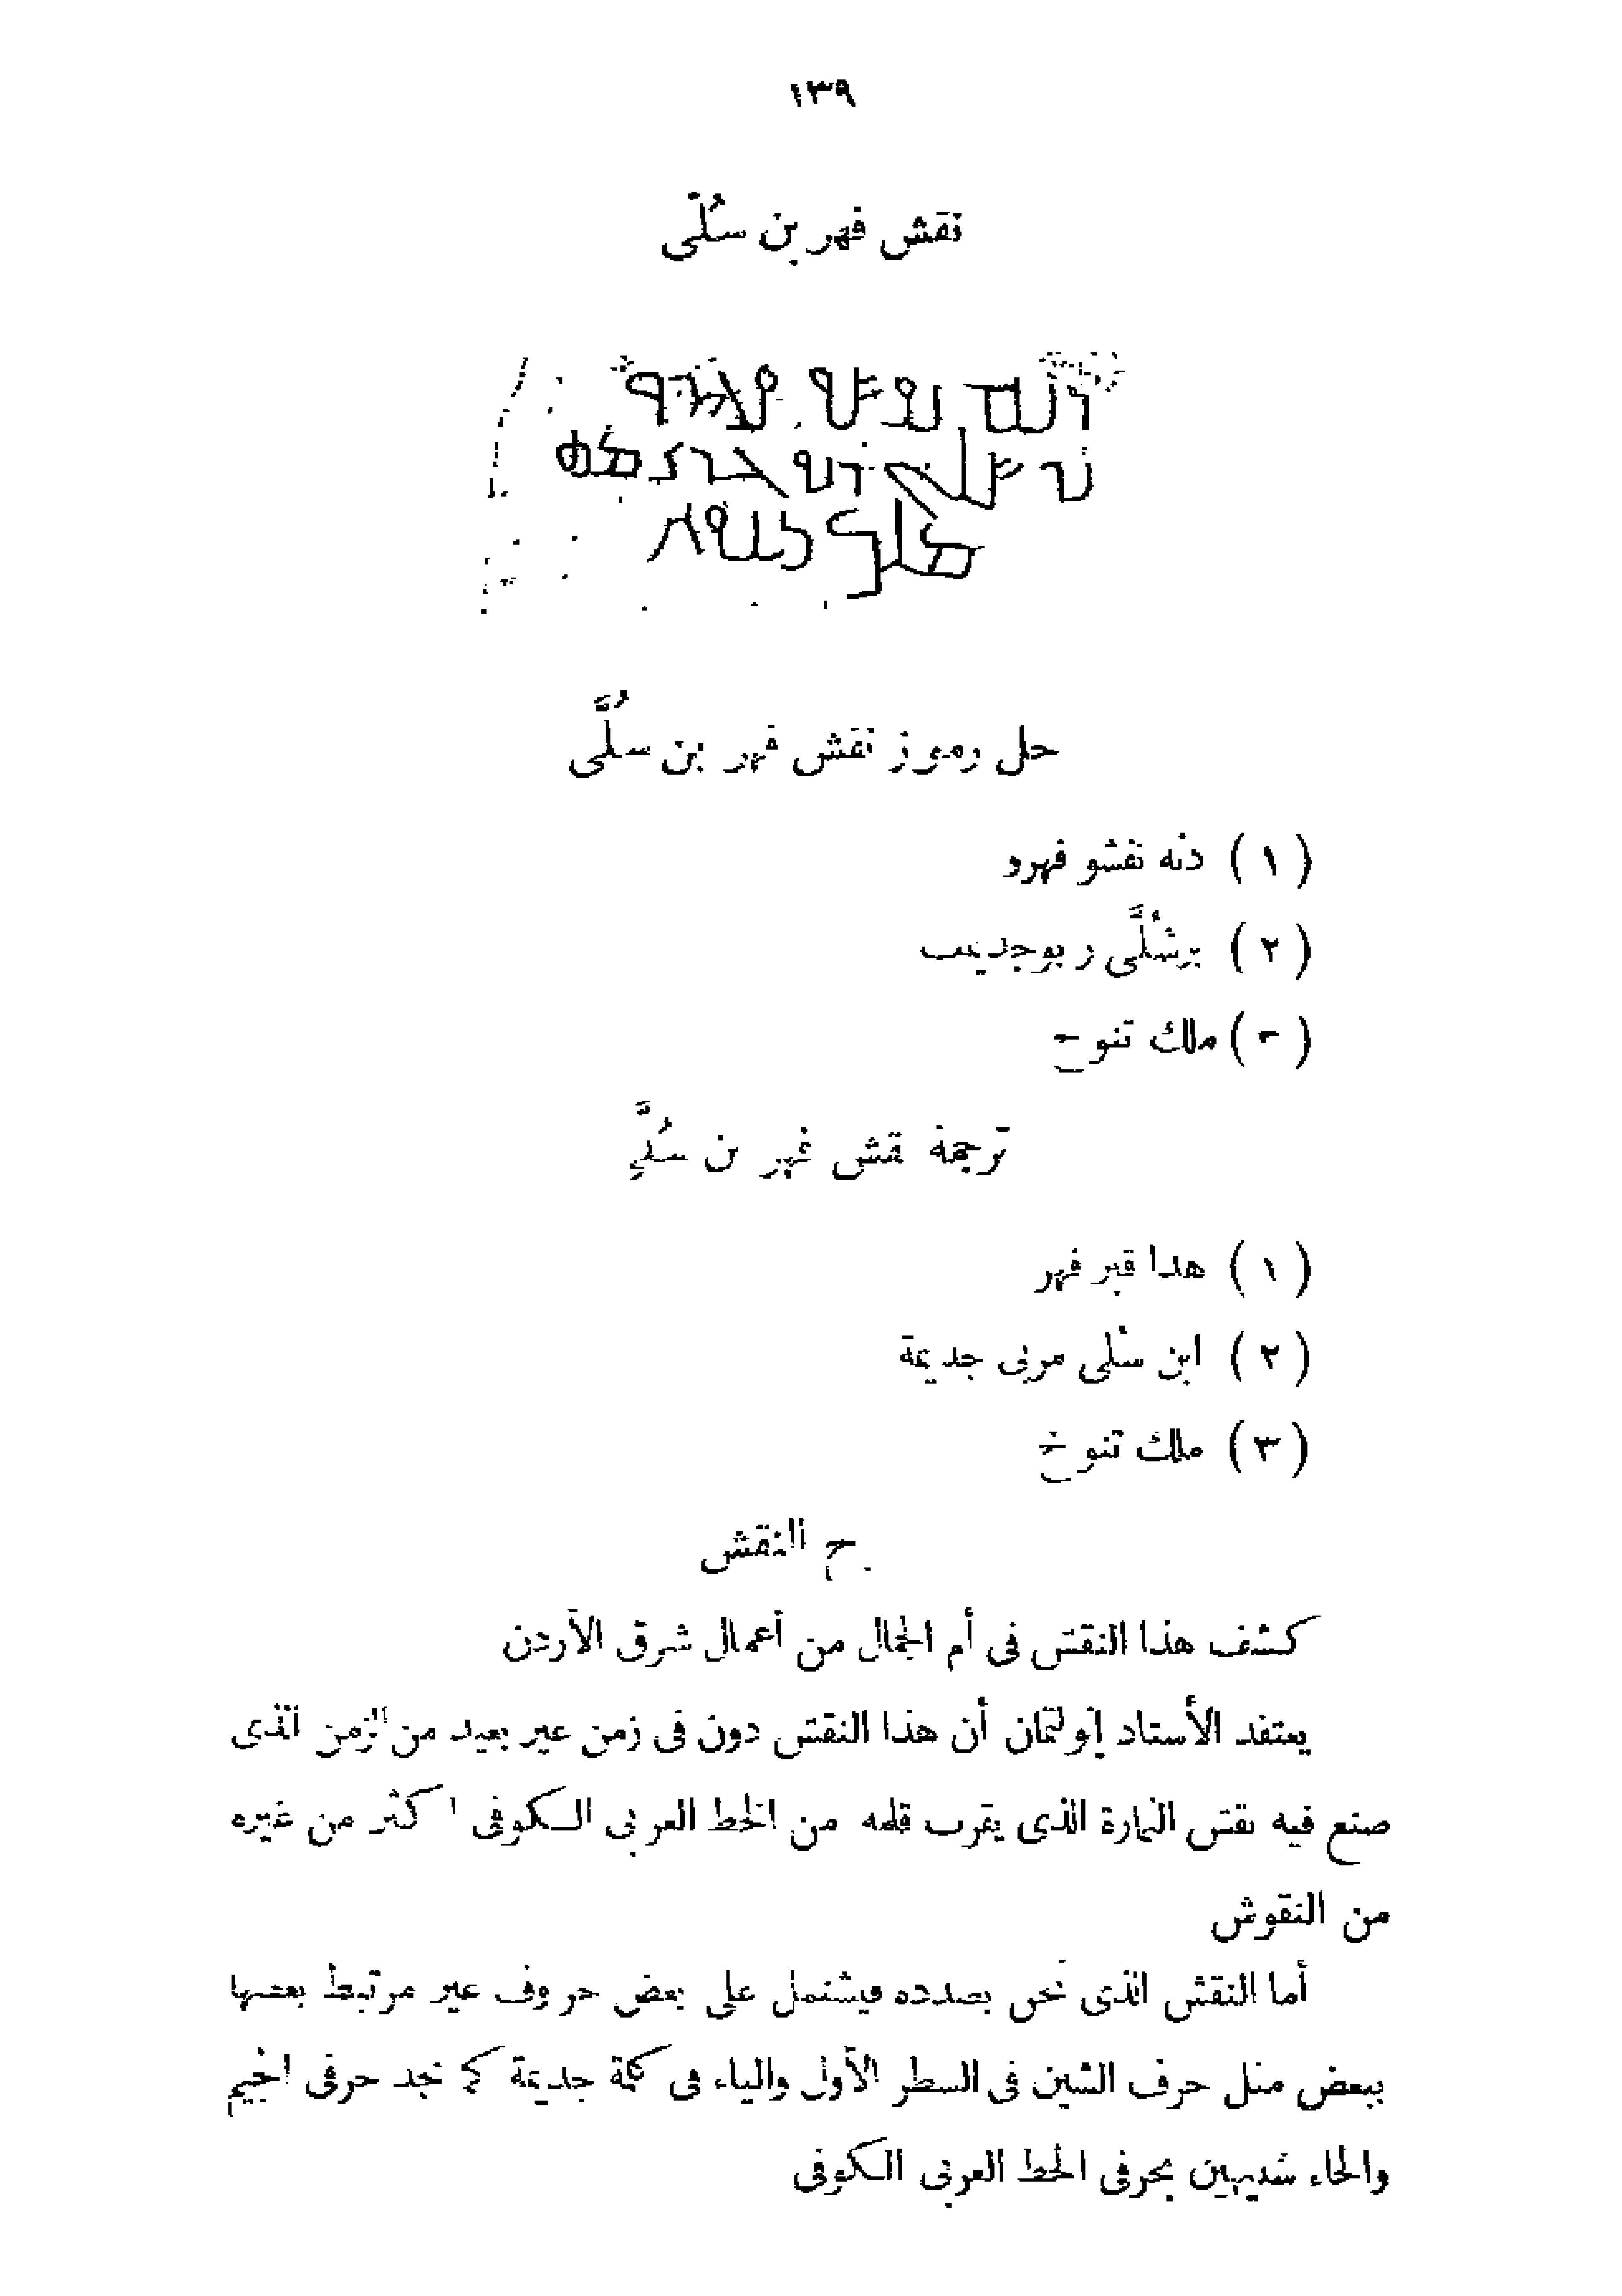 ١٣٩
نقش فهر بن سُلّى
حل رموز نقش فهر بن سُلَّى
( ١ ) دنه نفشو فهرو
( ٢ ) برشُلَّى ربو جديمت
( ٣ ) ملك تنوح
ترجمة نقش فهر بن سُلَّى
( ١ ) هذا قبر فهر
( ٢ ) ابن سُلى مربى جديمة
( ٣ ) ملك تنوخ
النقش
كشف هذا النقش فى أم الجمال من أعمال شرق الأردن
يعتقد الأستاذ إنولتمان أن هذا النقش دون فى زمن غير بعيد من الزمن الذى
صنع فيه نقش النمارة الذى يقرب قلمه من الخط العربى الكوفى أكثر من غيره
من النقوش
أما النقش الذى نحن بصدده فيشتمل على بعض حروف غير مرتبط بعضها
ببعض مثل حرف الشين فى السطر الأول والياء فى كلمة جديمة كما نجد حرفى الجيم
والحاء شديهين بحرفى الخط العربى الكوفى